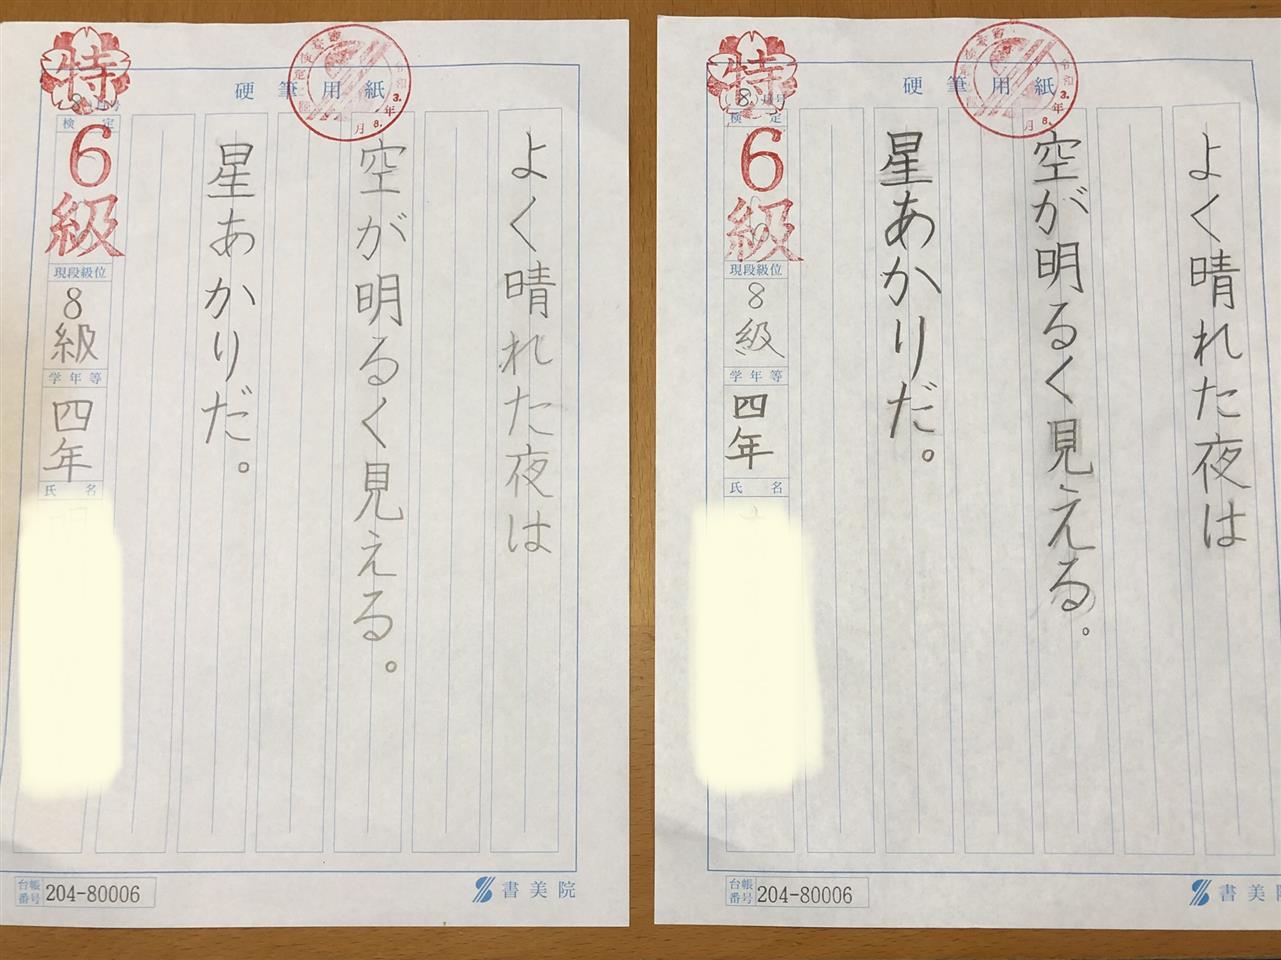 硬筆用紙
よく晴れた夜は
空が明るく見える。
星あかりだ。
特
8月号
検定
6級
現段級位
8級
学年等
四年
氏名
台帳番号 204-80006
書美院
硬筆用紙
よく晴れた夜は
空が明るく見える。
星あかりだ。
特
8月号
検定
6級
現段級位
8級
学年等
四年
氏名
台帳番号 204-80006
書美院